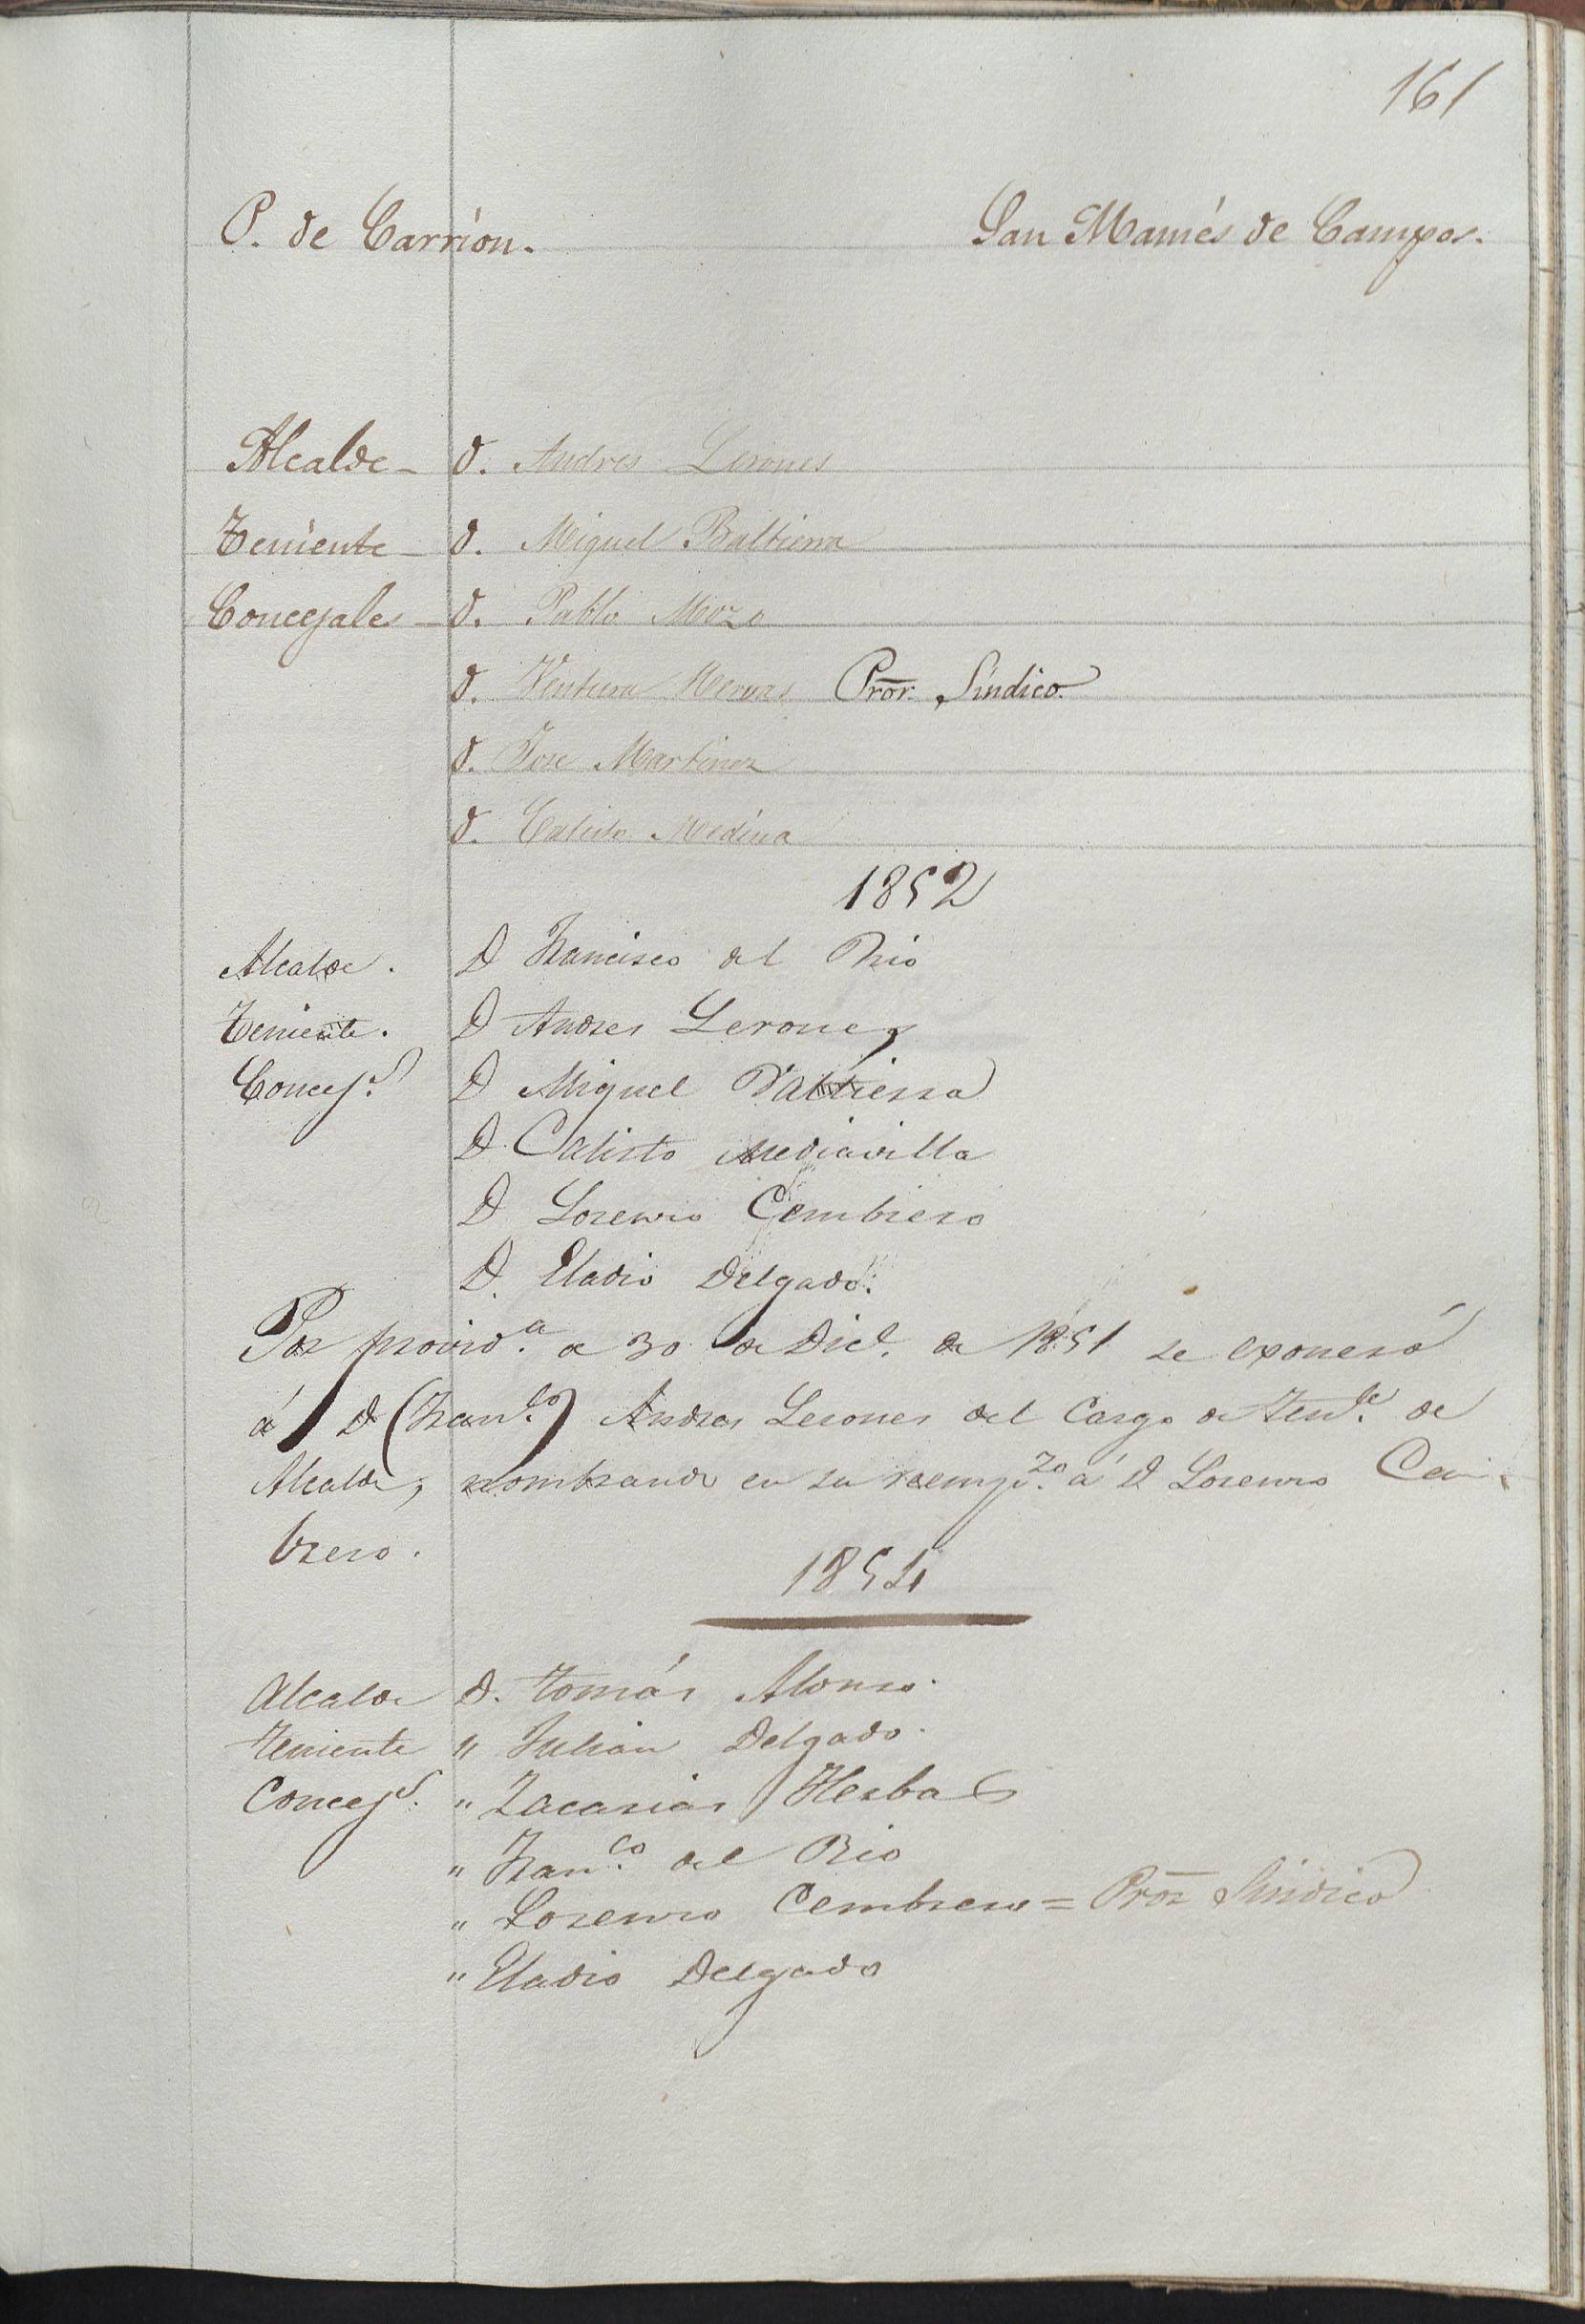 161
P. de Carrión. San Mamés de Campos.
Alcalde - D. Andres Lerones
Teniente - D. Miguel Baltierra
Concejales - D. Pablo Mozo
D. Ventura Hervas Pror. Síndico.
D. Jose Martinez
D. Calisto Medina
1852
Alcalde. D Francisco del Rio
Teniente. D Andres Lerones
Concej.s D Miguel Valtierra
D. Calisto Mediavilla
D Lorenzo Cembrero
D. Eladio Delgado.
Por provid.a de 30 de Dice. de 1851 se exoneró
á D (Fran.co) Andres Lerones del Cargo de Ten.te de
Alcalde, nombrando en su reempl.zo á D Lorenzo Cem
brero.
1854
Alcalde D. Tomás Alonso.
Teniente " Julian Delgado.
Concej.s " Zacarias Herbas
" Fran.co del Rio
" Lorenzo Cembrero = Pror Sindico
" Eladio Delgado